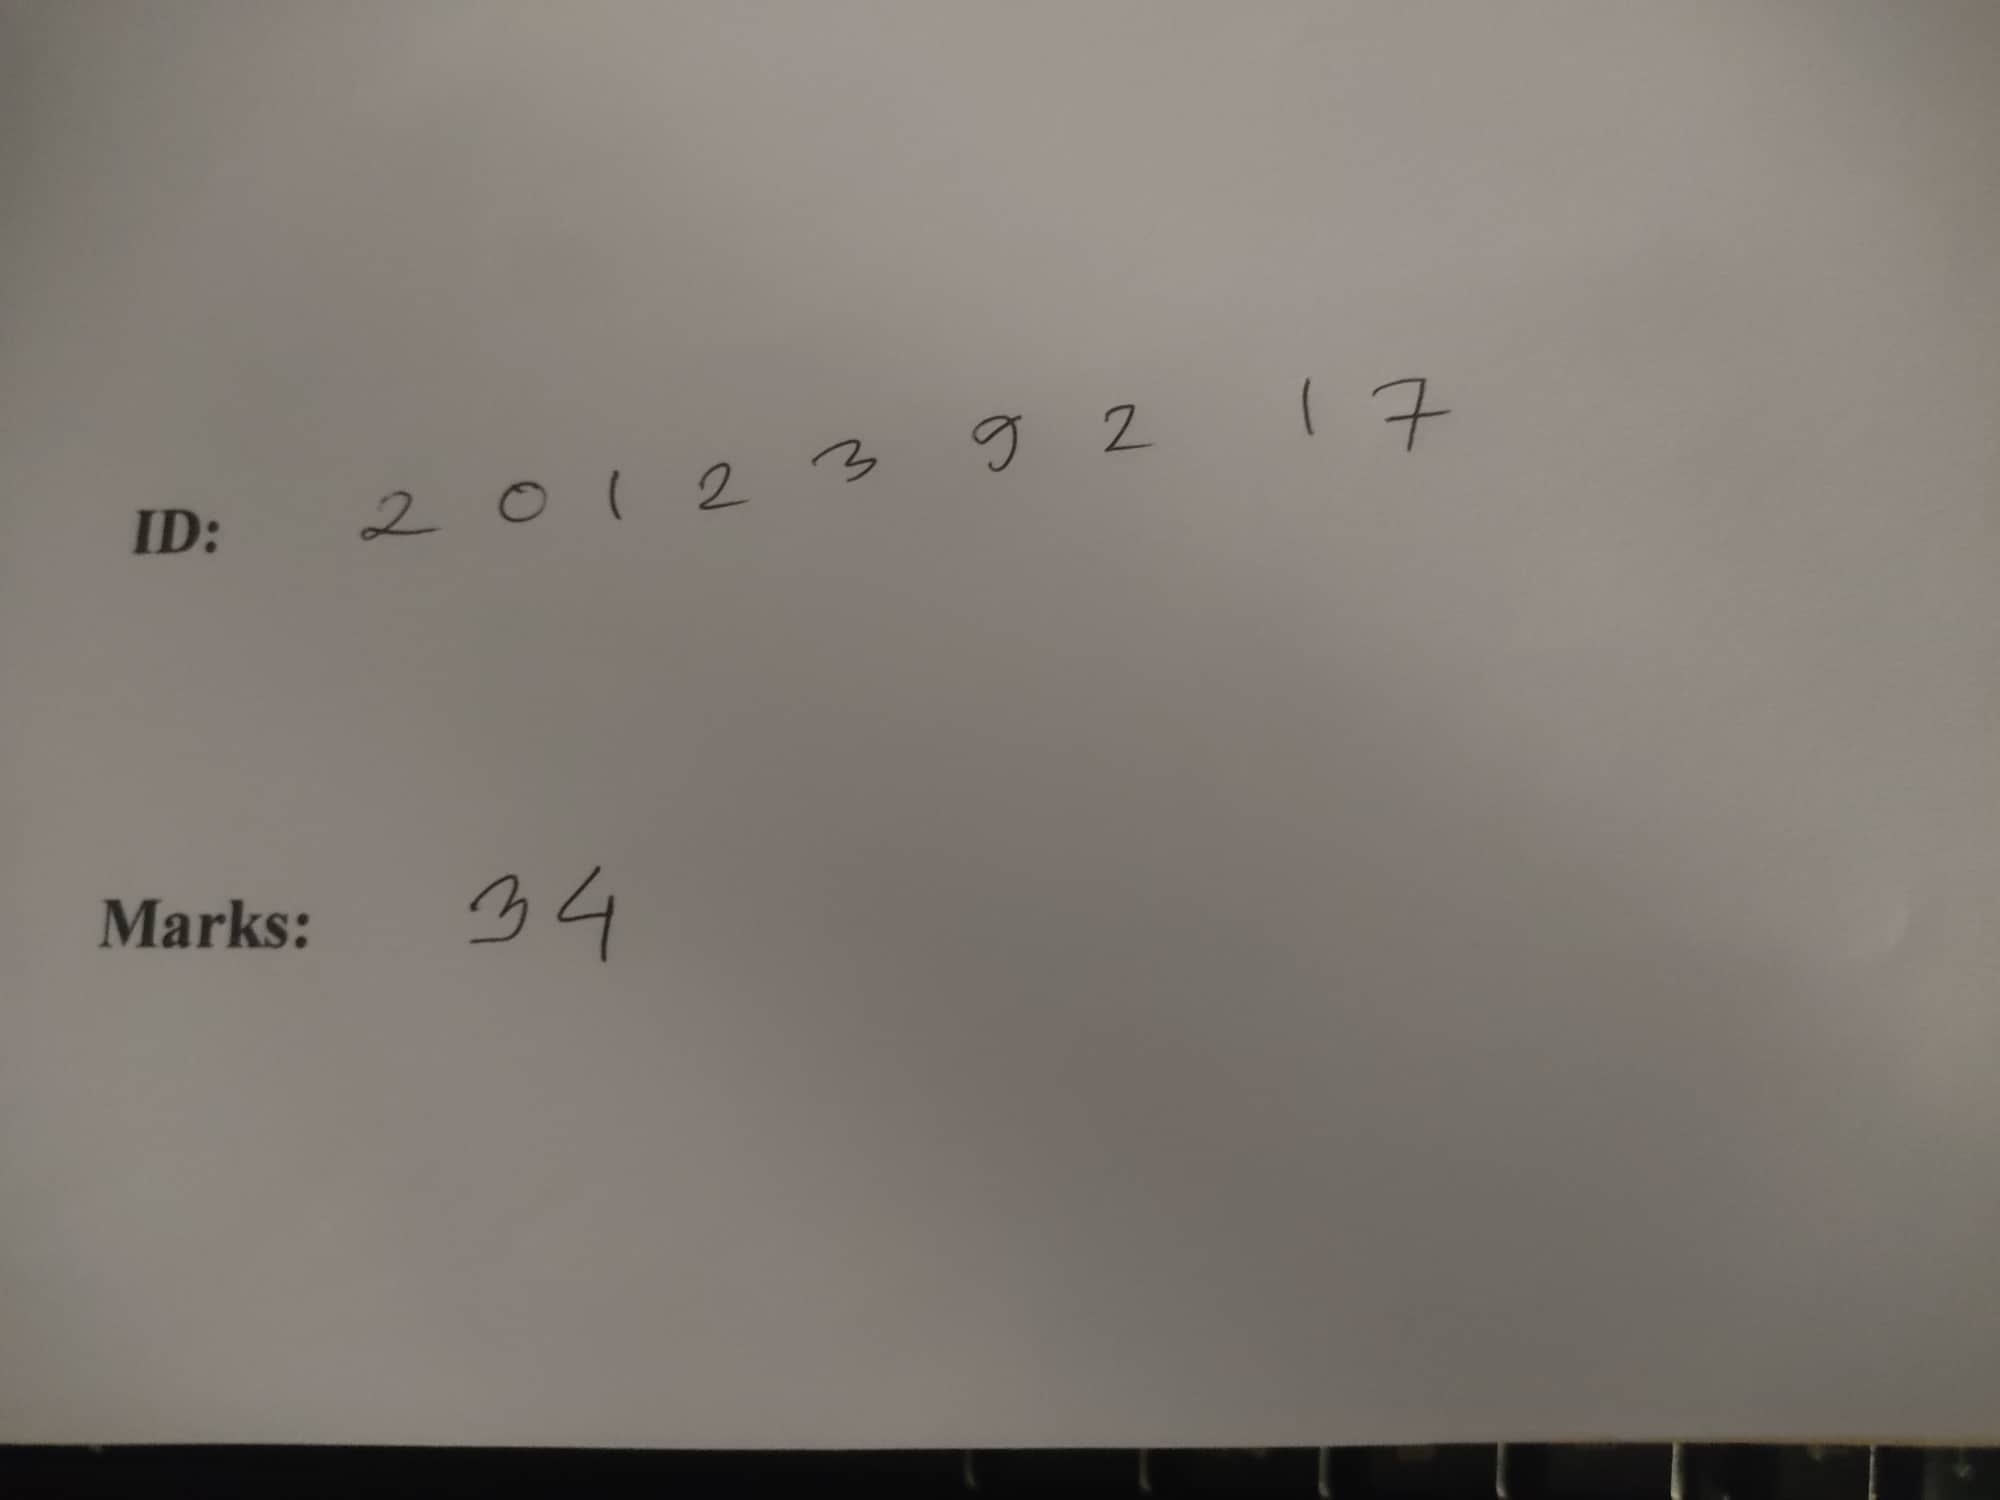 ID: 2 0 1 2 3 9 2 1 7
Marks: 34